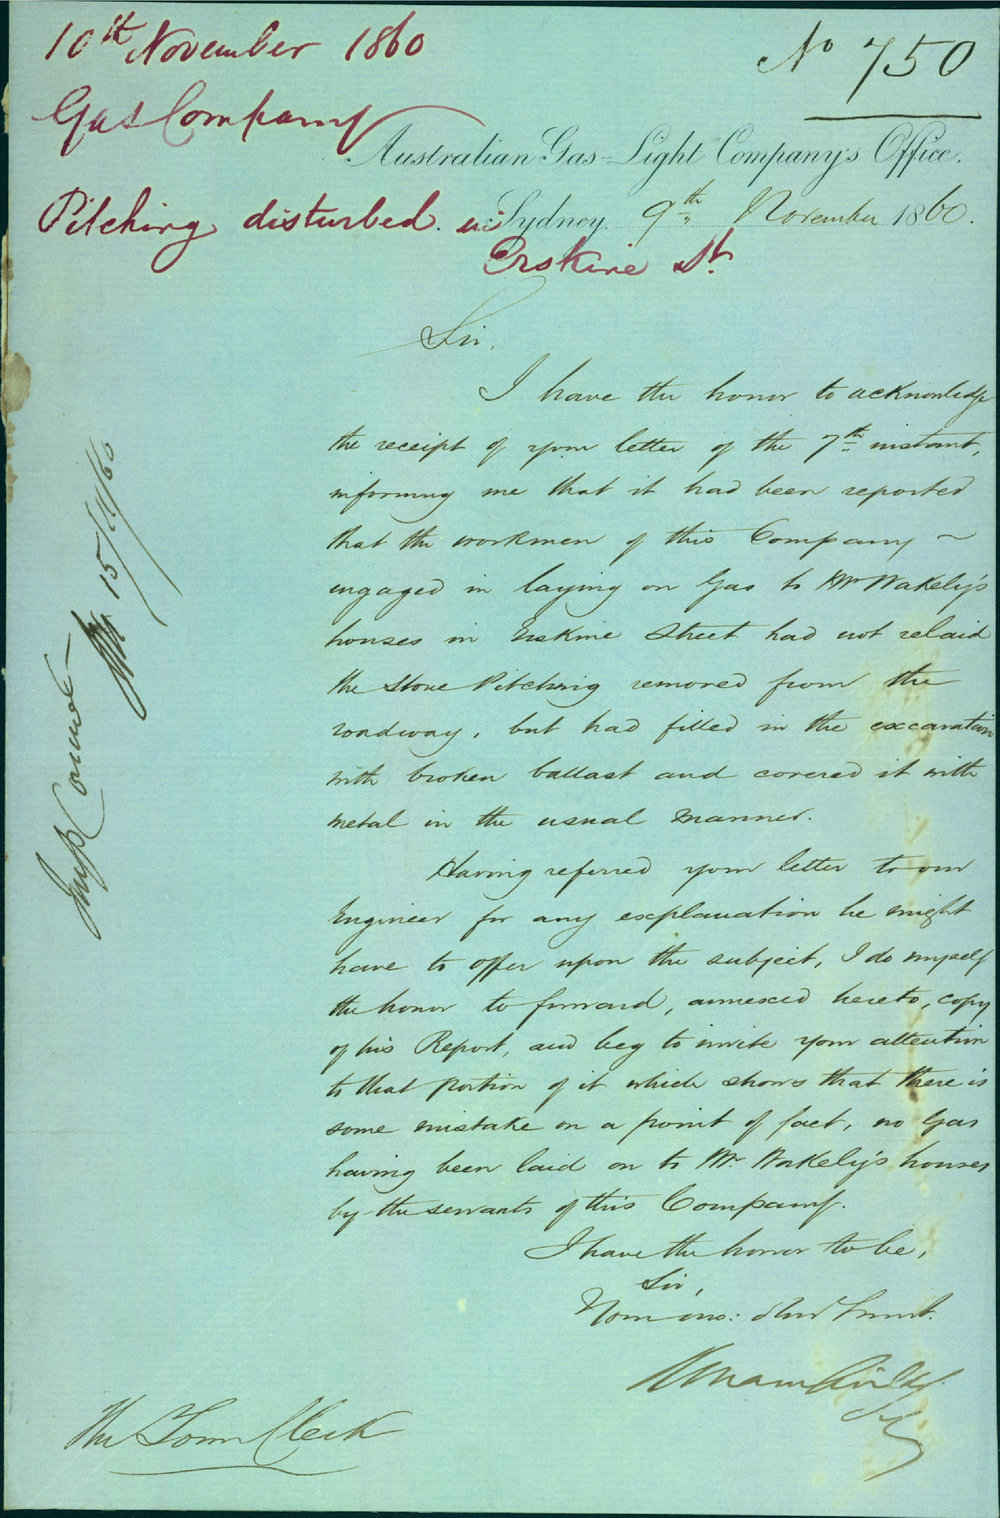 10th November 1860
No 750
Gas Company
Australian Gas-Light Company's Office.
Pitching disturbed in
Sydney. 9th November 1860.
Erskine St
Sir,
I have the honor to acknowledge
the receipt of your letter of the 7th instant,
informing me that it had been reported
that the workmen of this Company ~
engaged in laying on Gas to Mr Wakely's
houses in Erskine Street had not relaid
the Stone Pitching removed from the
roadway, but had filled in the excavation
with broken ballast and covered it with
metal in the usual manner.
Having referred your letter to our
Engineer for any explanation he might
have to offer upon the subject, I do myself
the honor to forward, annexed hereto, copy
of his Report, and beg to invite your attention
to that portion of it which shows that there is
some mistake on a point of fact, no Gas
having been laid on to Mr Wakely's houses
by the servants of this Company.
I have the honor to be,
Sir,
Your mo: obed Servt.
Secy
The Town Clerk
15/11/60